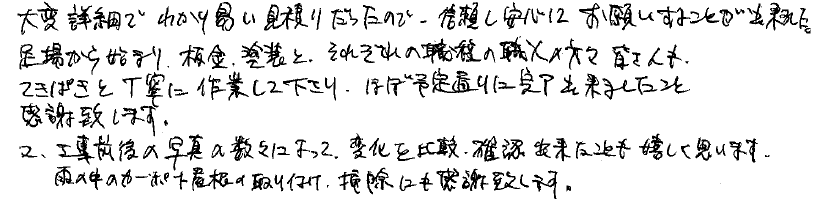 大変詳細でわかり易い見積りだったので、信頼し安心にお願いすることが出来ました
足場から始まり、板金、塗装と、それぞれの職種の職人の方々皆さんも、
てきぱきと丁寧に作業して下さり、ほぼ予定通りに完了出来ましたこと
感謝致します。
又、工事前後の写真の数々によって、変化を比較・確認出来たことも嬉しく思います。
雨の中のカーポート屋根の取り付け、掃除にも感謝致します。